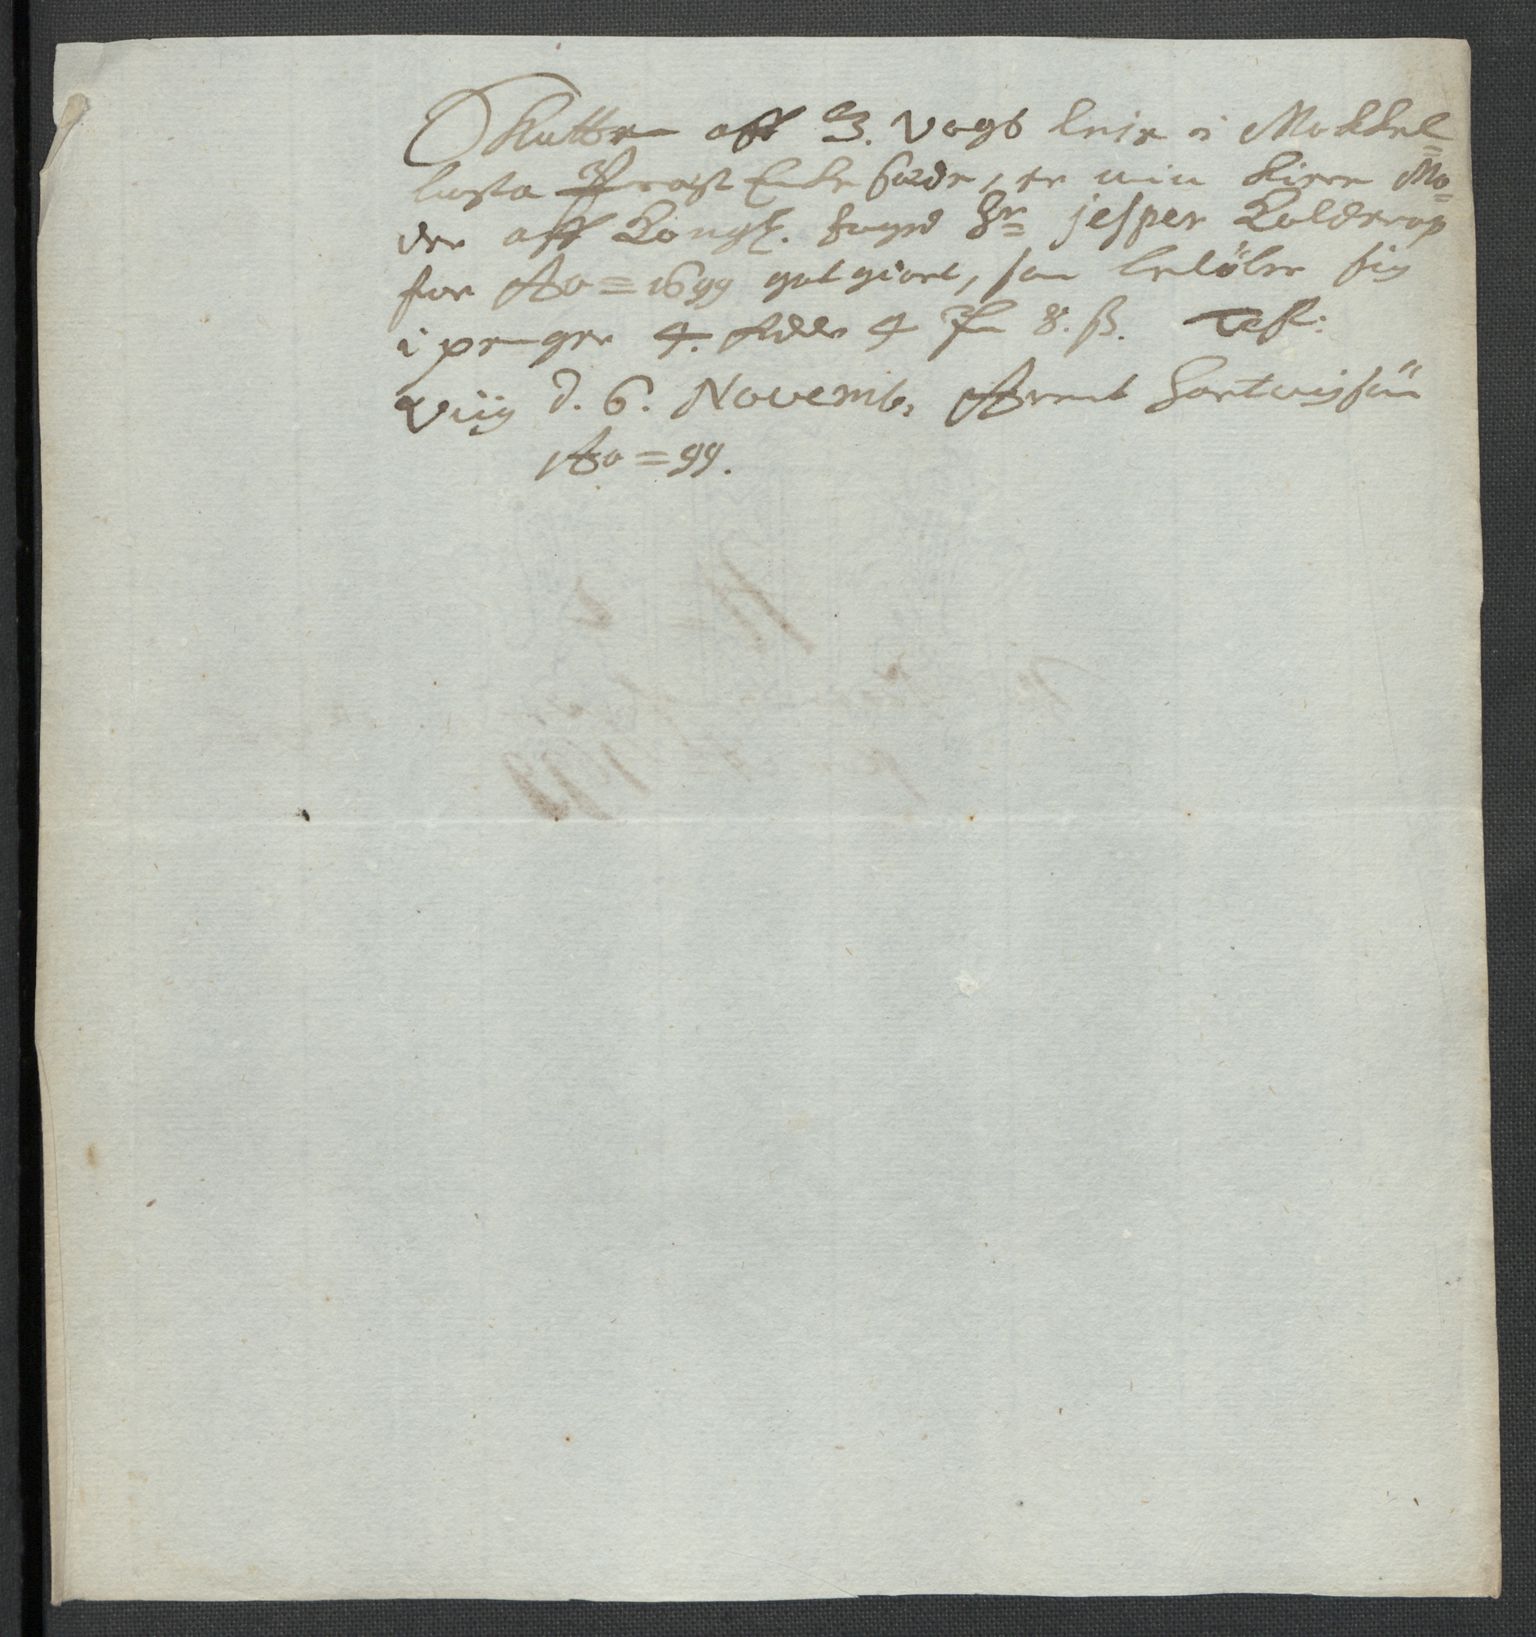 Skatten aff 3. Vogs leie i Mokkel=
løsta Prest Enke sæde, er min kiere Mo=
der aff Kongl. fogd Hr= jesper Kolderup
for Ao=1699 got giort, som beløber sig
i penger 4. Rdlr 4 8. ß. Test:
Viig d. 6. Novemb, Arent Hartvigsön
Ao=99.